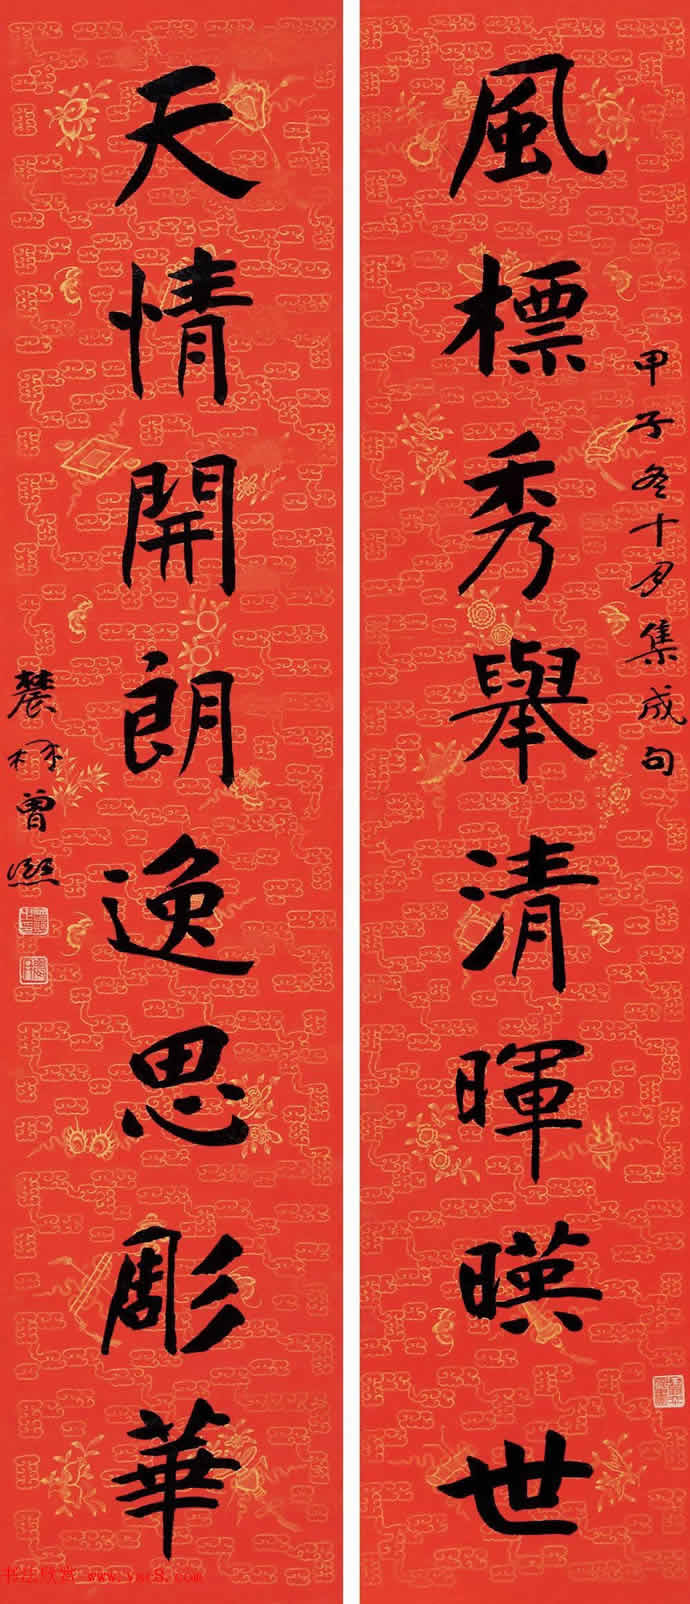 風標秀舉清暉暎世
甲子冬十月集成句
天情開朗逸思彫華
農髯曾熙
书法欣赏 www.yac8.com